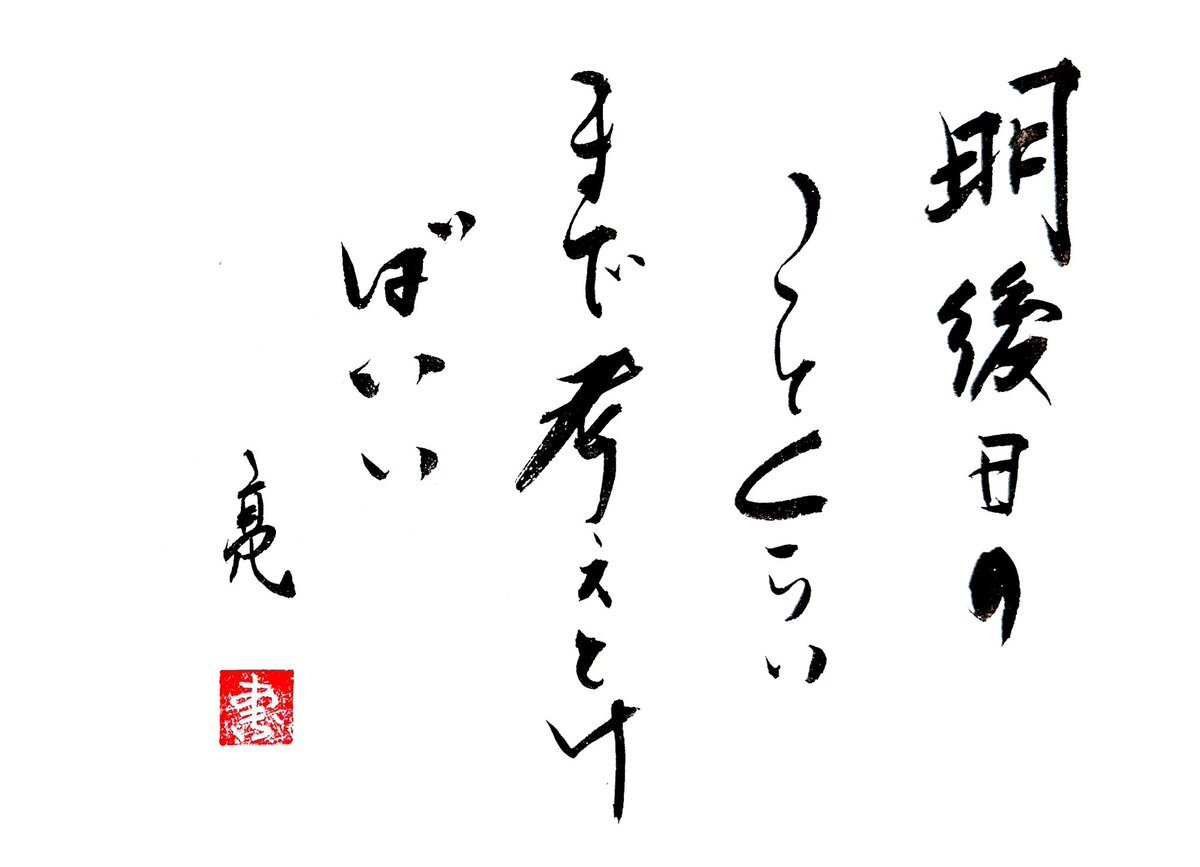 明後日の
ことくらい
まで考えとけ
ばいい
亮
書